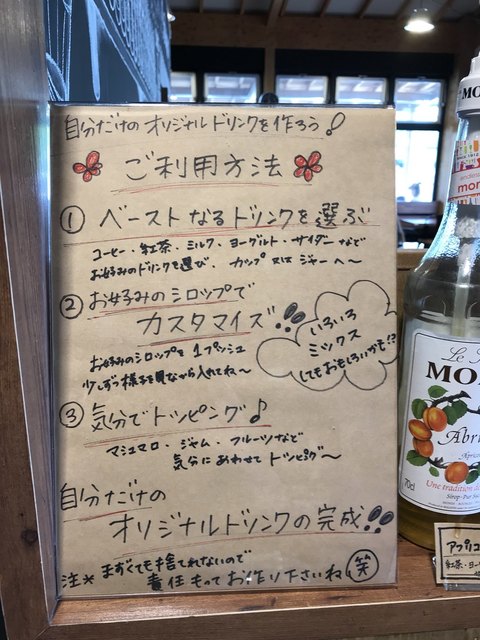 自分だけのオリジナルドリンクを作ろう!
ご利用方法
① ベースとなるドリンクを選ぶ
コーヒー・紅茶・ミルク・ヨーグルト・サイダーなど
お好みのドリンクを選び、カップ又はジャーへ〜
② お好みのシロップで
カスタマイズ
お好みのシロップを1プッシュ
少しずつ様子を見ながら入れてね〜
いろいろ
ミックス
してもおもしろいかも!?
③ 気分でトッピング♪
マシュマロ・ジャム・フルーツなど
気分にあわせてトッピング〜
自分だけの
オリジナルドリンクの完成
注* まずくても捨てれないので
責任もってお作り下さいね 笑
Le
MO
Abri
Apric
Une tradition
Sirop·Pur
70cl
アプリコ
紅茶・ヨー